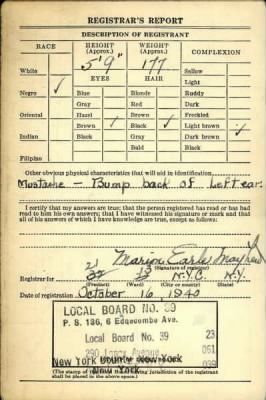 REGISTRAR'S REPORT
DESCRIPTION OF REGISTRANT
RACE HEIGHT (Approx.) WEIGHT (Approx.) COMPLEXION
5' 9" 177
EYES HAIR
White Sallow
Light
Negro ✓ Blue Blonde Ruddy
Gray Red Dark
Oriental Hazel Brown Freckled
Brown ✓ Black ✓ Light brown
Indian Black Gray Dark brown ✓
Bald Black
Filipino
Other obvious physical characteristics that will aid in identification
Mustache - Bump back of left ear.
I certify that my answers are true; that the person registered has read or has
had read to him his own answers; that I have witnessed his signature or mark and that
all of his answers of which I have knowledge are true, except as follows:
Marion Earle
(Signature of registrar)
Registrar for N.Y.C. N.Y.
(Precinct) (Ward) (City or county) (State)
Date of registration October 16, 1940
LOCAL BOARD NO. 39
P. S. 136, 6 Edgecombe Ave.
Local Board No. 39 23
290 Lenox Avenue 061
New York County New York 039
New York
(The stamp of the having jurisdiction of the registrant
shall be placed in the above space.)